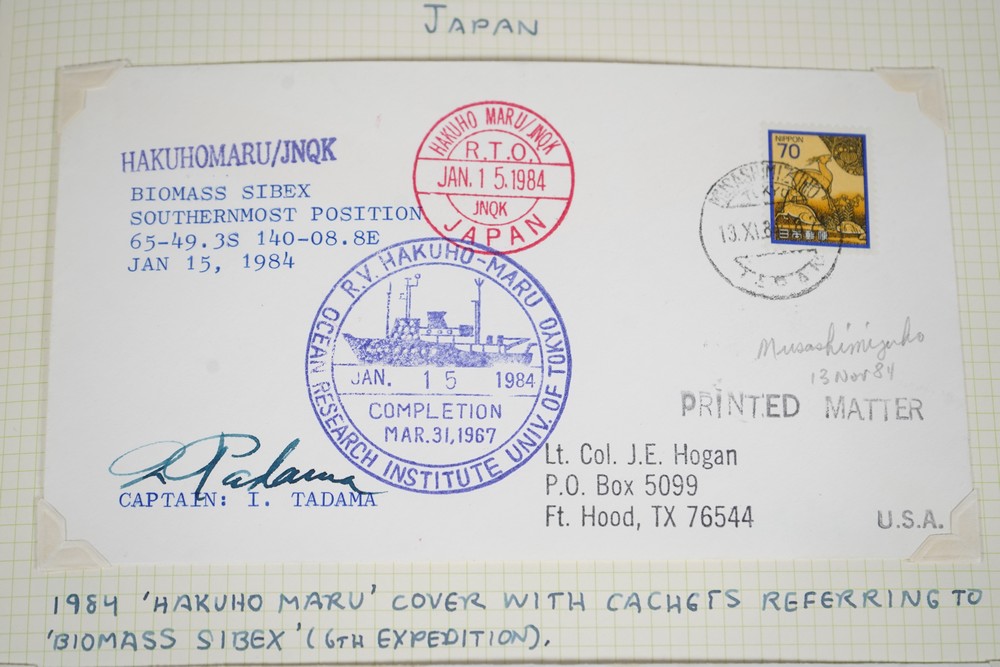 JAPAN
HAKUHOMARU/JNQK
BIOMASS SIBEX
SOUTHERNMOST POSITION
65-49.3S 140-08.8E
JAN 15, 1984
HAKUHO MARU/JNQK
R.T.O.
JAN. 15. 1984
JNQK
JAPAN
NIPPON
70
日本郵便
MUSASHIMIZUHO
TOKYO
13.XI.8
JAPAN
R.V. HAKUHO-MARU
OCEAN RESEARCH INSTITUTE UNIV. OF TOKYO
JAN. 15 1984
COMPLETION
MAR.31,1967
Musashimizuho
13 Nov 84
PRINTED MATTER
Lt. Col. J.E. Hogan
P.O. Box 5099
Ft. Hood, TX 76544
U.S.A.
I. Tadama
CAPTAIN: I. TADAMA
1984 'HAKUHO MARU' COVER WITH CACHETS REFERRING TO
'BIOMASS SIBEX' (6TH EXPEDITION).